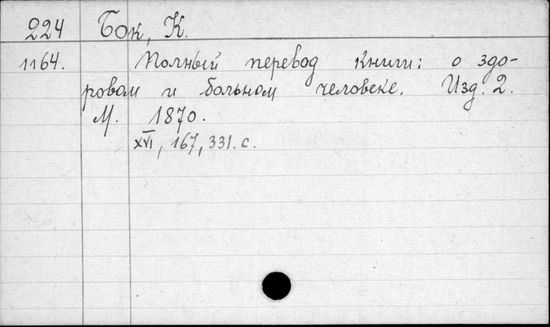 224 Бок, К.
1164. Полный перевод книги: о здо-
ровом и больном человеке. Изд. 2.
М. 1870.
XVI, 167, 331. с.